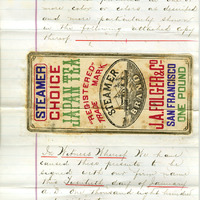 more color or colors as descrbed
and more particularly shown
in the following attached copy
thereof
STEAMER
CHOICE
JAPAN TEA
"REGISTERED"
TRADE MARK
STEAMER
BRAND
J.A. FOLGER & CO
SAN FRANCISCO
ONE POUND
In Witness Whereof We have
caused these presents to be
signed with our firm name
this Twentieth day of January
A D One thousand eight hundred